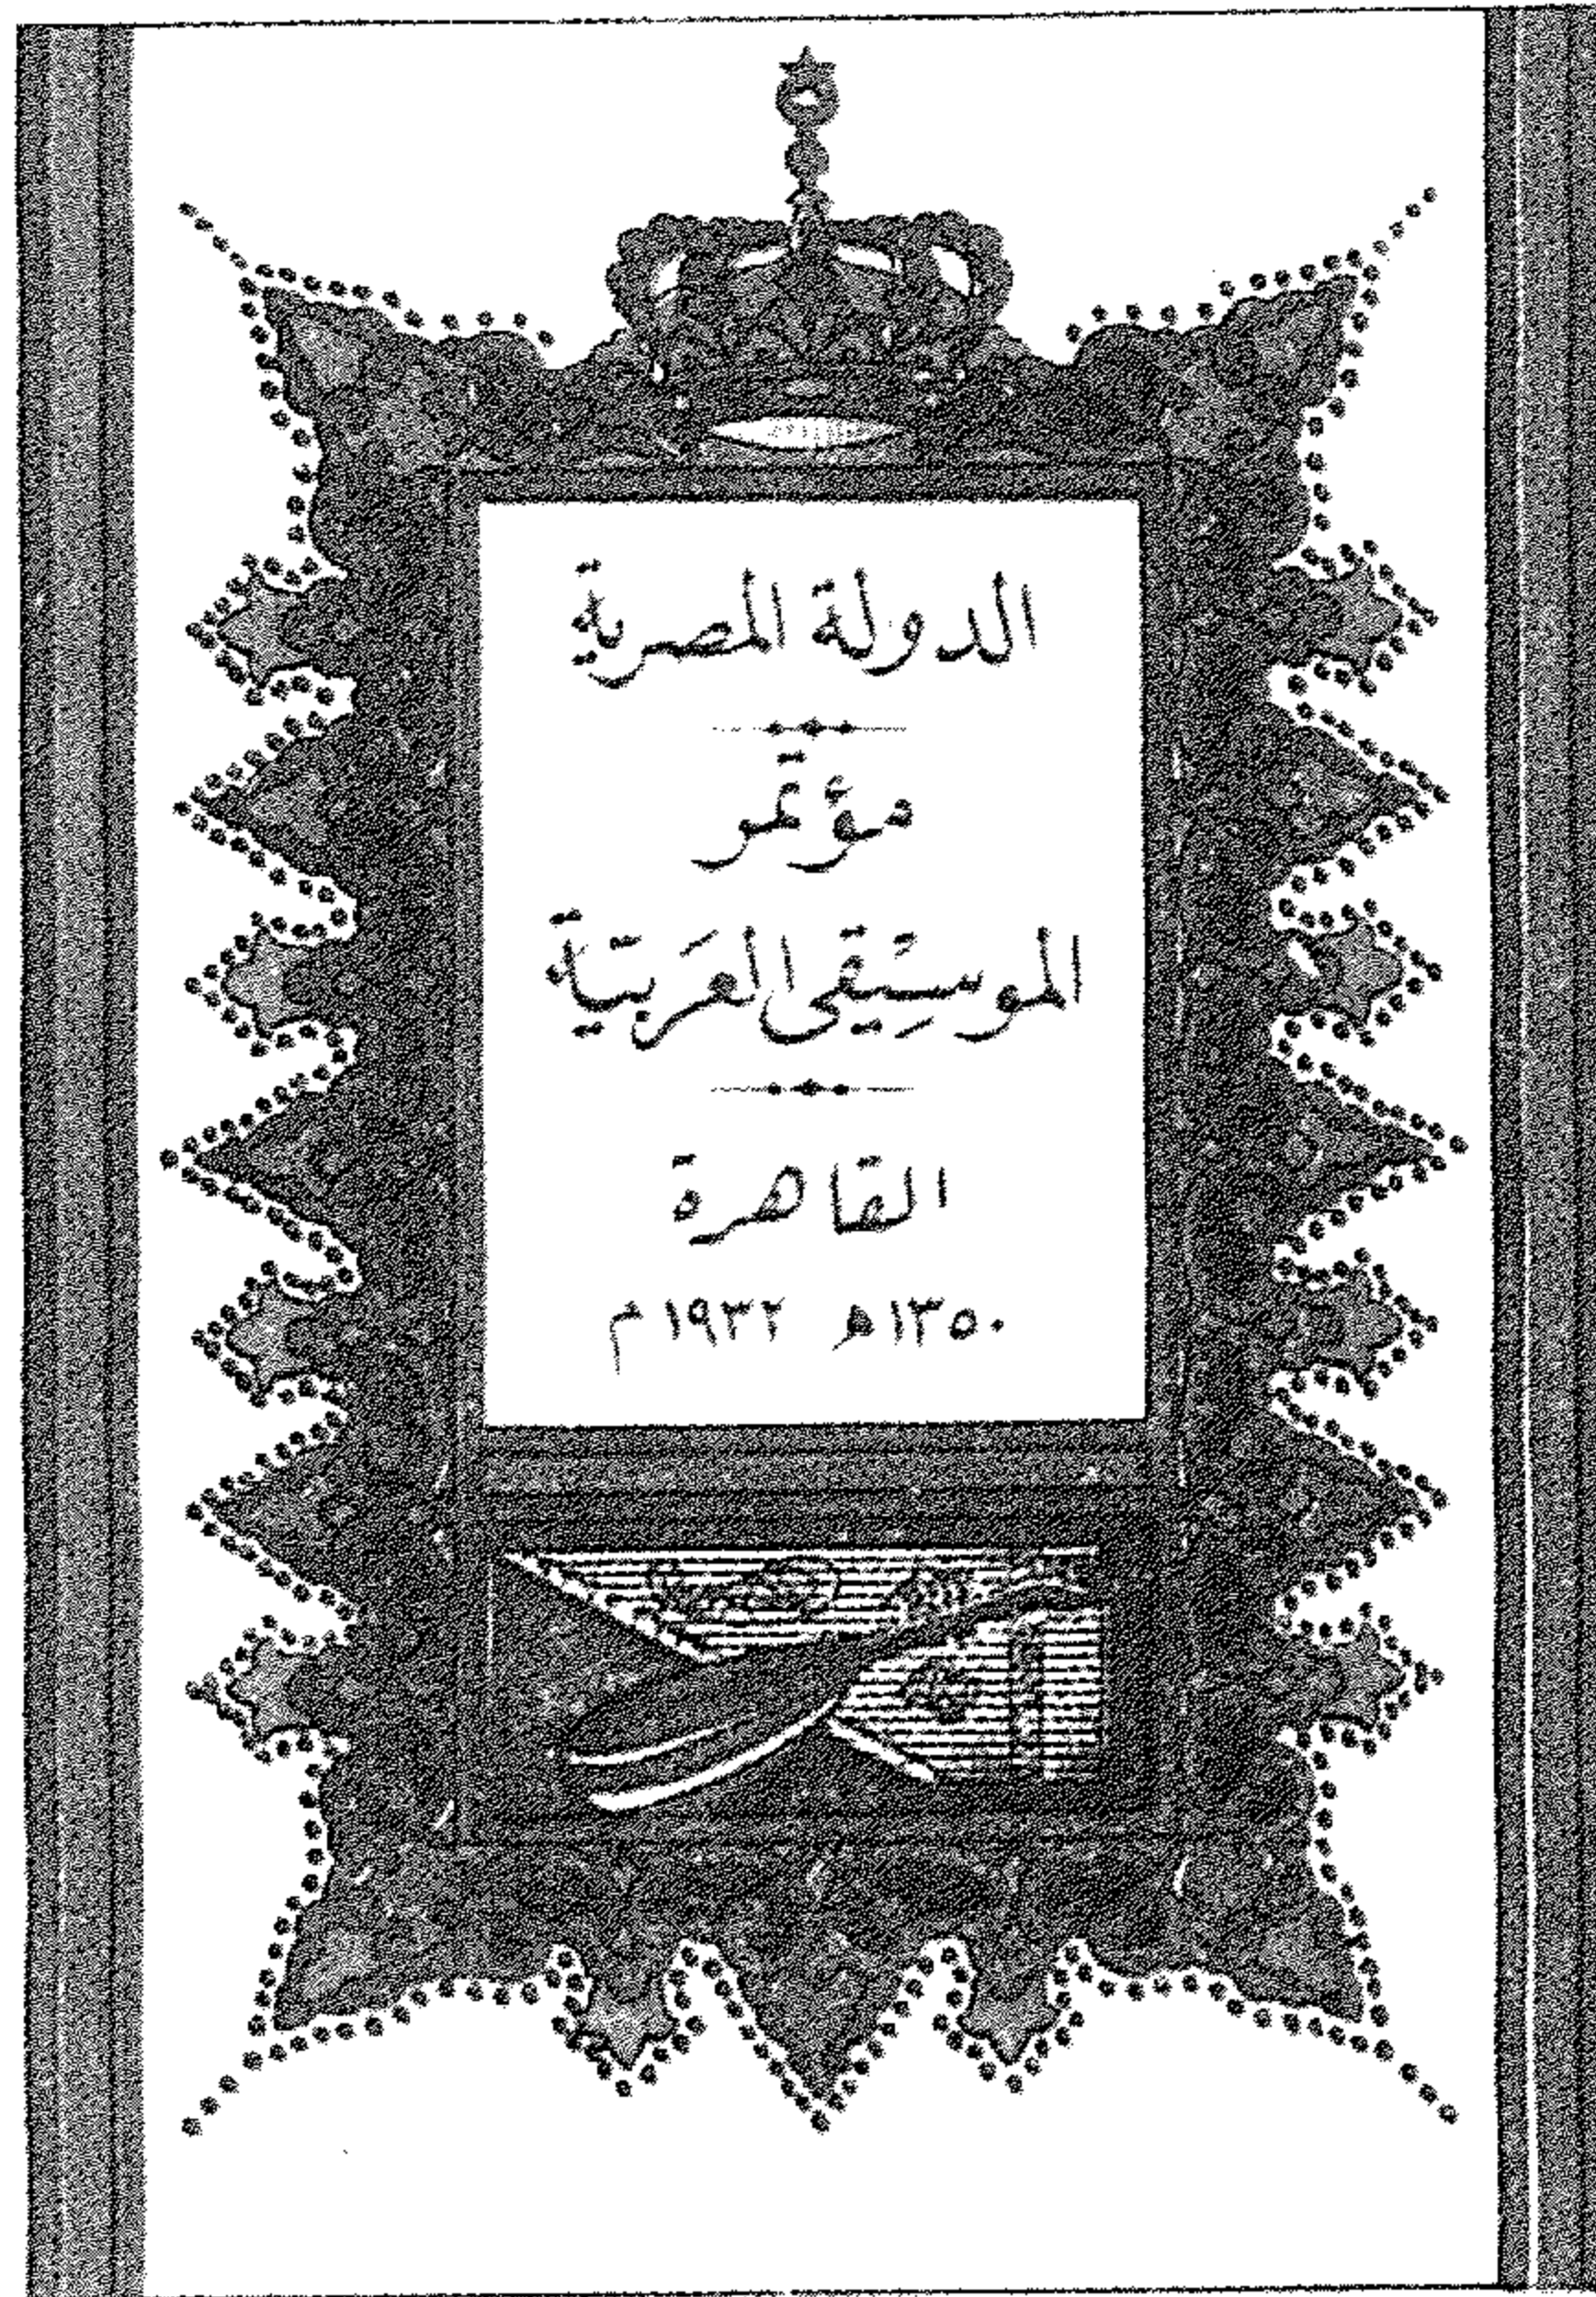 الدولة المصرية
مؤتمر
الموسِيقى العَربيَّة
القاهرة
١٣٥٠ھ ١٩٣٢ م